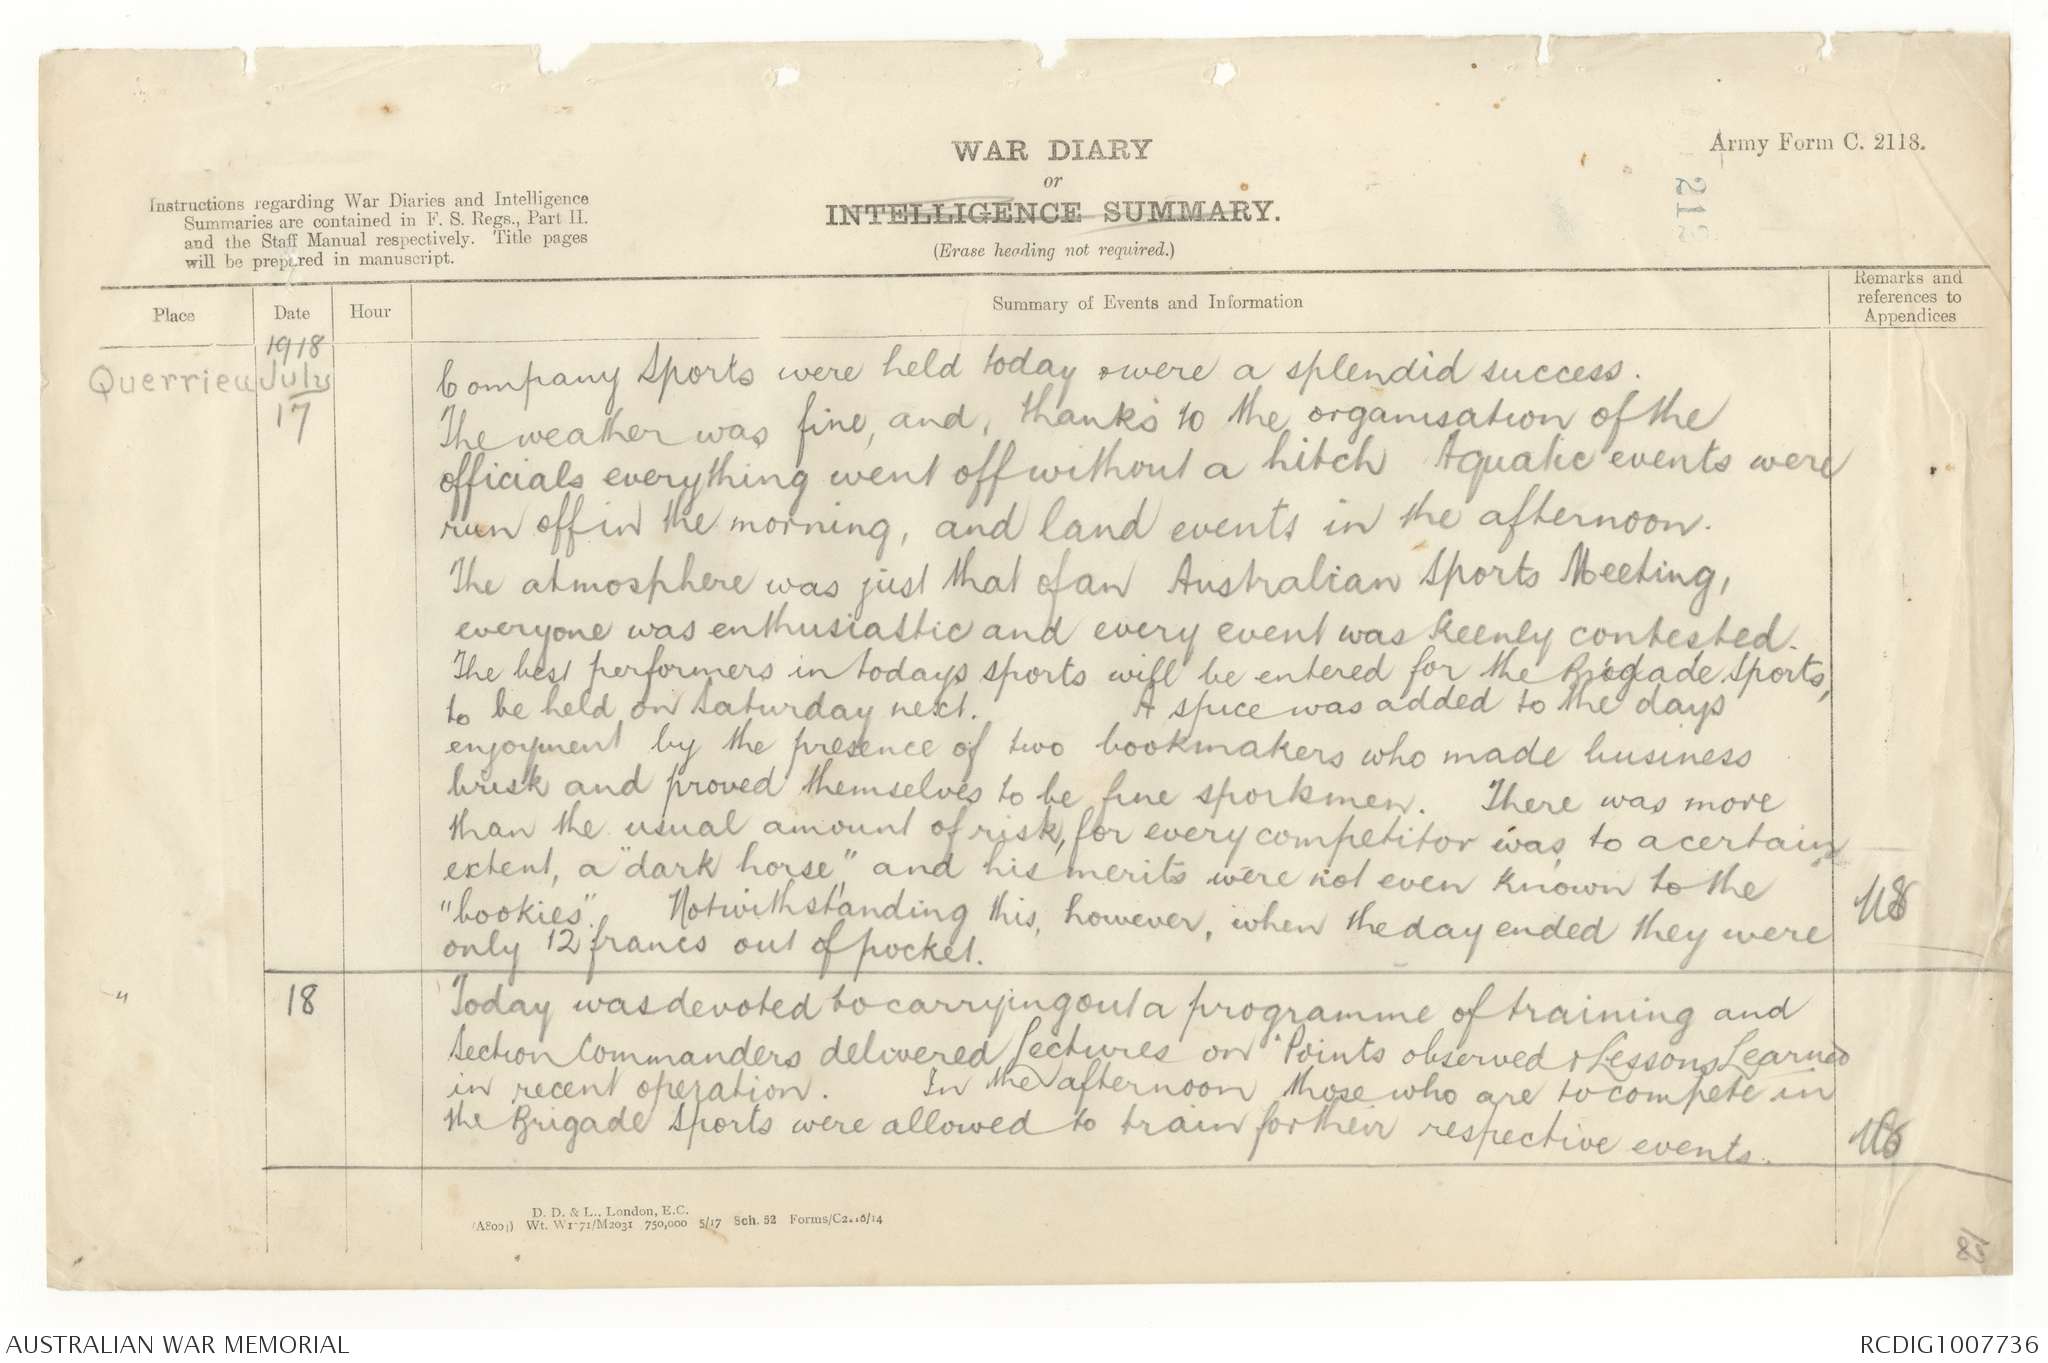 WAR DIARY
or
INTELLIGENCE SUMMARY.
(Erase heading not required.)
Army Form C. 2118.
Instructions regarding War Diaries and Intelligence
Summaries are contained in F. S. Regs., Part II.
and the Staff Manual respectively. Title pages
will be prepared in manuscript.
Place
Date
Hour
Summary of Events and Information
Remarks and
references to
Appendices
1918
Querrieu July
17
Company Sports were held today & were a splendid success.
The weather was fine, and, thanks to the organisation of the
officials everything went off without a hitch Aquatic events were
run off in the morning, and land events in the afternoon.
The atmosphere was just that of an Australian Sports Meeting,
everyone was enthusiastic and every event was keenly contested.
The best performers in todays sports will be entered for the Brigade Sports,
to be held on Saturday next. A spice was added to the days
enjoyment by the presence of two bookmakers who made business
brisk and proved themselves to be fine sportsmen. There was more
than the usual amount of risk, for every competitor was, to a certain
extent, a "dark horse" and his merits were not even known to the
"bookies". Notwithstanding this, however, when the day ended they were
only 12 francs out of pocket.
" 18
Today was devoted to carrying out a programme of training and
Section Commanders delivered lectures on "Points observed & Lessons Learned
in recent operation. In the afternoon those who are to compete in
the Brigade Sports were allowed to train for their respective events.
D. D. & L., London, E.C.
Wt. W1771/M2031 750,000 5/17 Sch. 52 Forms/C2118/14
AUSTRALIAN WAR MEMORIAL
RCDIG1007736